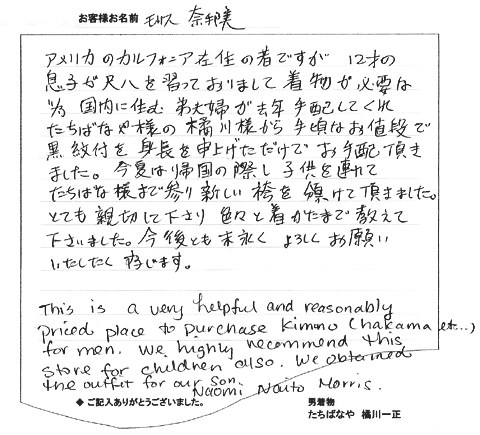 お客様お名前 モリス 奈邦美
アメリカのカルフォニア在住の者ですが 12才の
息子が尺八を習っておりまして着物が必要な
為 国内に住む弟夫婦が去年手配してくれ
たちばなや様の橘川様から手頃なお値段で
黒紋付を身長を申上げただけでお手配頂き
ました。今夏は帰国の際し子供を連れて
たちばな様まで参り新しい袴を頒けて頂きました。
とても親切して下さり色々と着かたまで教えて
下さいました。今後とも末永くよろしくお願い
いたしたく存じます。
This is a very helpful and reasonably
priced place to purchase kimono (hakama etc...)
for men. We highly recommend this
store for children also. We obtained
the outfit for our son.
Naomi Naito Morris.
◆ ご記入ありがとうございました。
男着物
たちばなや 橘川一正